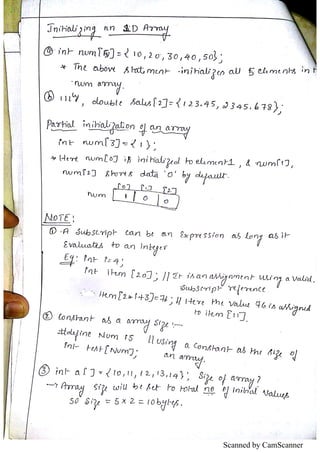 Initializing an 1D Array
ⓐ int num[5] = {10, 20, 30, 40, 50};
* The above statment initializes all 5 elements in t
num array.
ⓑ 111ly, double Sales[2] = {123.45, 2345.678};
Partial initialization of an array
int num[3] = {1};
* Here num[0] is initialized to element 1, & num[1],
num[2] stores data '0' by default.
[0] [1] [2]
num 1 0 0
NOTE:
① A Subscript can be an Expression as long as it
Evaluates to an Integer
Eg: int i=4;
int item [20]; // It is an assignment using a valid
Subscript reference
item[2*i+3]=76; // Here the value 76 is assigned
to item [11].
② Constant as a array size :-
#define Num 15 // using a constant as the size of
int test[Num]; an array.
③ int a[] = {10, 11, 12, 13, 14}; Size of array?
→ Array size will be set to total no of initial values
So size = 5 x 2 = 10 bytes.
Scanned by CamScanner